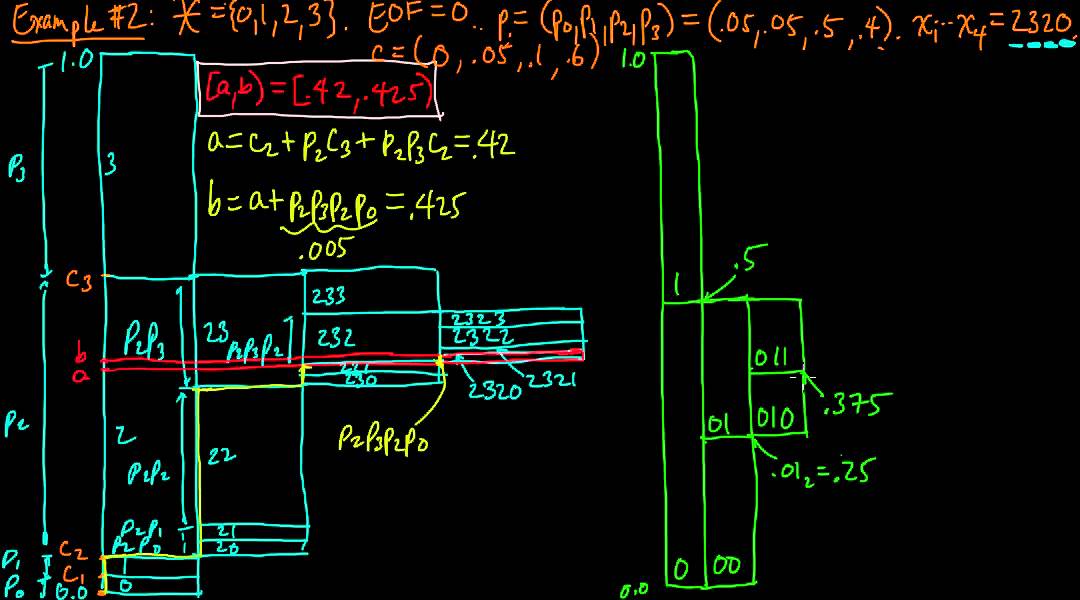 Example #2: X = {0,1,2,3}. EOF=0. p = (p₀,p₁,p₂,p₃) = (.05,.05,.5,.4). x₁...x₄ = 2320.
c = (0, .05, .1, .6)
1.0
[a,b) = [.42, .425)
a = c₂ + p₂c₃ + p₂p₃c₂ = .42
b = a + p₂p₃p₂p₀ = .425
.005
p₃
3
c₃
233
2323
p₂p₃
23
p₂p₃p₂
232
2322
b
a
231
230
2320
2321
p₂
2
22
p₂p₃p₂p₀
p₂p₂
p₂p₁
21
p₂p₀
1
20
p₁
c₂
1
c₁
p₀
0.0
0
1.0
.5
1
011
.375
01
010
.01₂ = .25
0
00
0.0